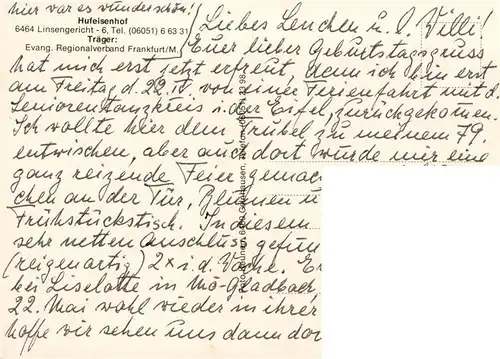 hier war es wunderschön!
Hufeisenhof
6464 Linsengericht - 6, Tel. (06051) 6 63 31
Träger:
Evang. Regionalverband Frankfurt/M.
Liebes Lenchen u. l. Willi
Euer lieber Geburtstagsgruss
hat mich erst jetzt erfreut, denn ich bin erst
am Freitag d. 22.IV. von einer Ferienfahrt mit d.
Seniorentanzkreis i. der Eifel, zurückgekommen.
Ich wollte hier dem Trubel zu meinem 79.
entwischen, aber auch dort wurde mir eine
ganz reizende Feier gemac
chen an der Tür, Blumen u
Frühstückstisch. In diesem
sehr netten Anschluss gefun
(reigenartig) 2x i. d. Woche. E
bei Liselotte in Mö-Gladbach,
22. Mai wohl wieder in ihrer
hoffe wir sehen uns dann dor